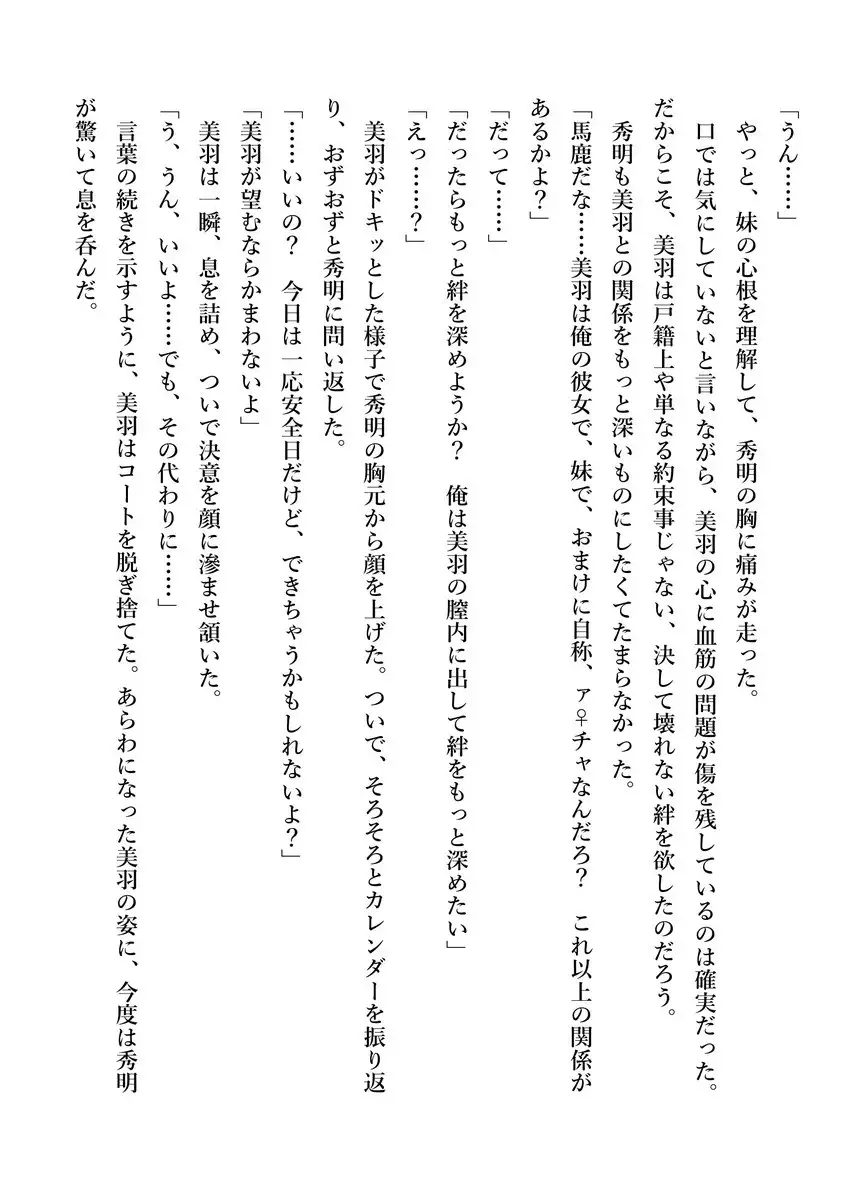 「うん……」
　やっと、妹の心根を理解して、秀明の胸に痛みが走った。
　口では気にしていないと言いながら、美羽の心に血筋の問題が傷を残しているのは確実だった。
だからこそ、美羽は戸籍上や単なる約束事じゃない、決して壊れない絆を欲したのだろう。
　秀明も美羽との関係をもっと深いものにしたくてたまらなかった。
「馬鹿だな……美羽は俺の彼女で、妹で、おまけに自称、ァ♀チャなんだろ？　これ以上の関係が
あるかよ？」
「だって……」
「だったらもっと絆を深めようか？　俺は美羽の膣内に出して絆をもっと深めたい」
「えっ……？」
　美羽がドキッとした様子で秀明の胸元から顔を上げた。ついで、そろそろとカレンダーを振り返
り、おずおずと秀明に問い返した。
「……いいの？　今日は一応安全日だけど、できちゃうかもしれないよ？」
「美羽が望むならかまわないよ」
　美羽は一瞬、息を詰め、ついで決意を顔に滲ませ頷いた。
「う、うん、いいよ……でも、その代わりに……」
　言葉の続きを示すように、美羽はコートを脱ぎ捨てた。あらわになった美羽の姿に、今度は秀明
が驚いて息を呑んだ。